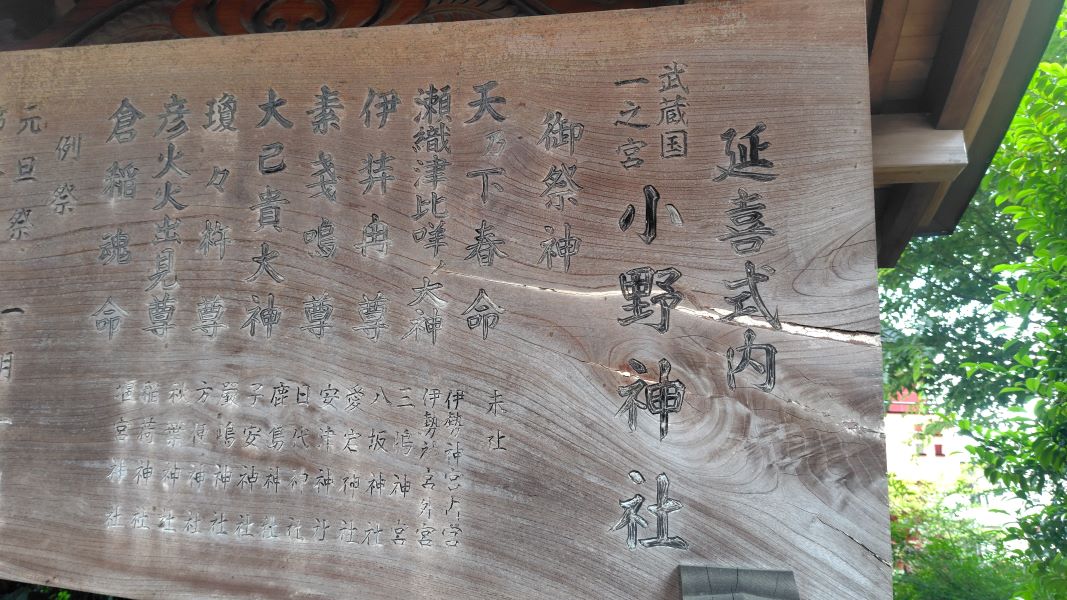 延喜式内
武蔵国
一之宮
小野神社
御祭神
天乃下春命
瀬織津比咩大神
伊弉冉尊
素戔嗚尊
大己貴大神
瓊々杵尊
彦火火出見尊
倉稲魂命
末社
伊勢神宮内宮
伊勢神宮外宮
三嶋神宮
八坂神社
愛宕神社
安津神社
日代神社
鹿島神社
子安神社
嚴嶋神社
秋葉神社
稲荷神社
例祭
元旦祭
一月一